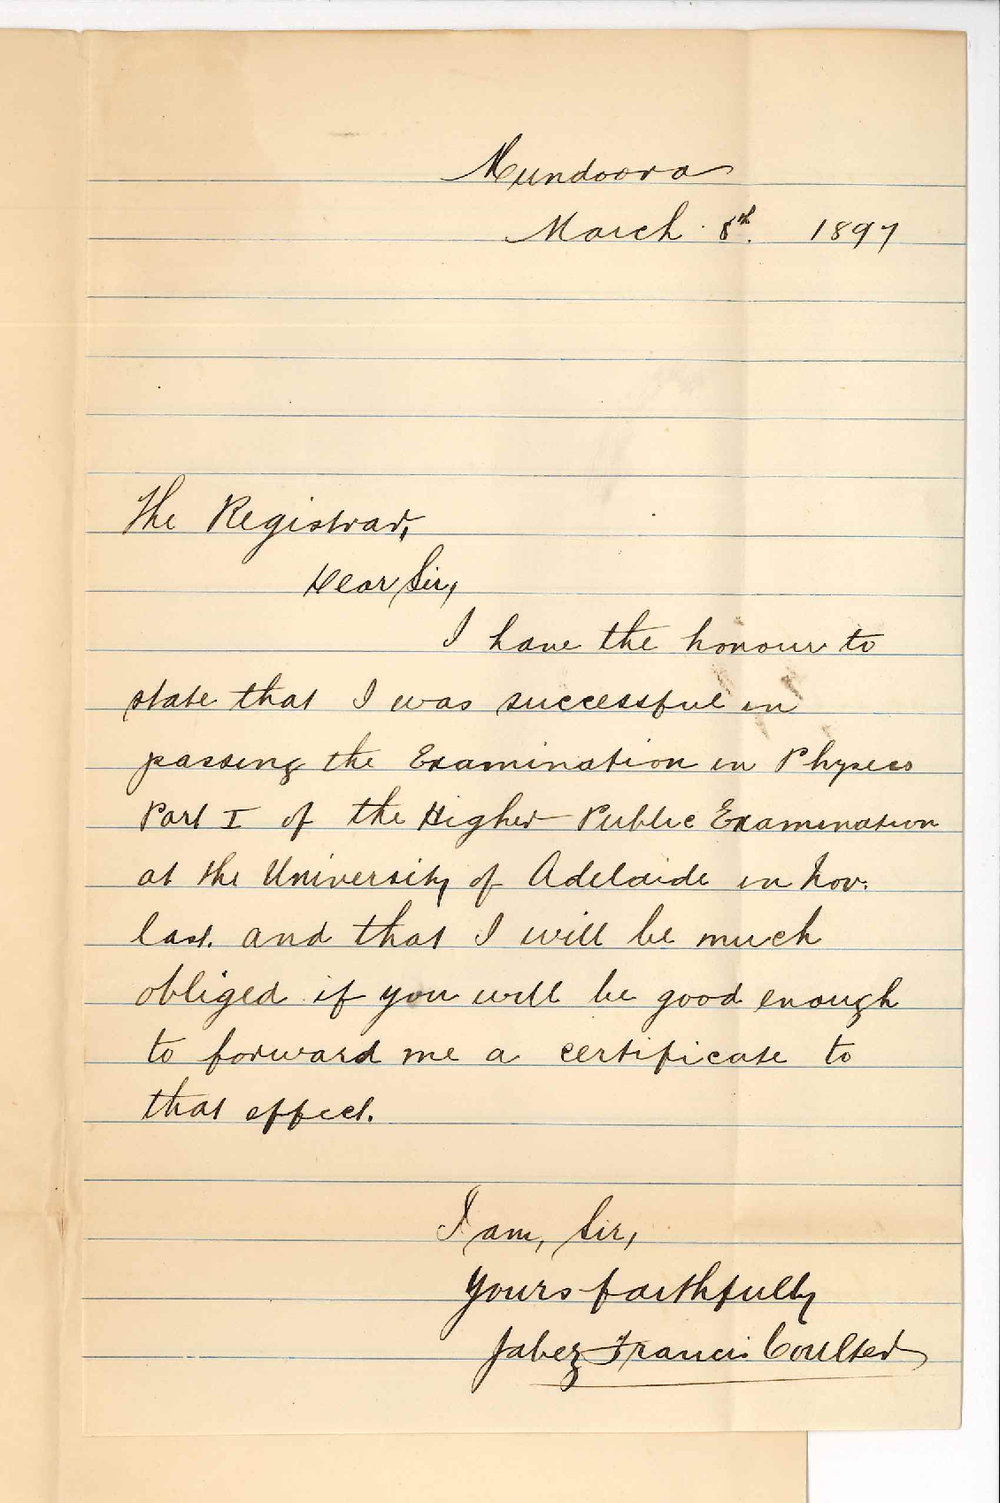 Mundoora
March 8th. 1897
The Registrar,
Dear Sir,
I have the honour to
state that I was successful in
passing the Examination in Physics
Part I of the Higher Public Examination
at the University of Adelaide in Nov.
last. and that I will be much
obliged if you will be good enough
to forward me a certificate to
that effect.
I am, Sir,
Yours faithfully
Jabez Francis Coulter